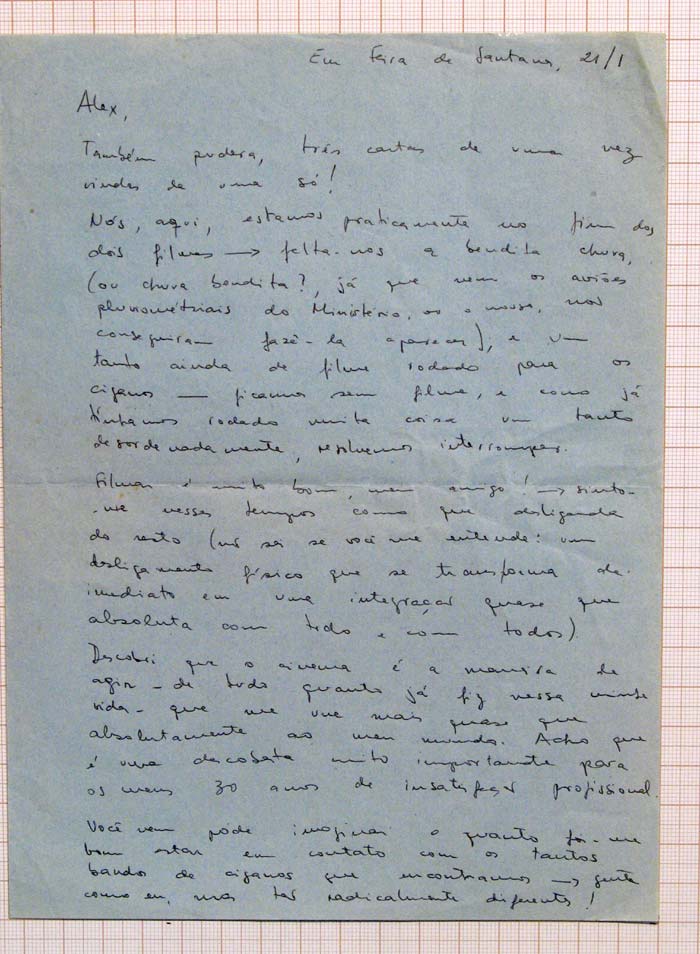 Em Feira de Santana, 21/1
Alex,
Também pudera, três cartas de uma vez
vindas de uma só!
Nós, aqui, estamos praticamente no fim dos
dois filmes → falta-nos a bendita chuva,
(ou chuva bendita?, já que nem os aviões
pluviométricos do Ministério, os o nosso, nos
conseguiram fazê-la aparecer), e um
tanto ainda de filme rodado para os
ciganos — ficamos sem filme, e como já
tínhamos rodado muita coisa um tanto
desordenadamente, resolvemos interromper.
Filmar é muito bom, meu amigo! → sinto-
-me nesses tempos como que desligada
do resto (não sei se você me entende: um
desligamento físico que se transforma de
imediato em uma integração quase que
absoluta com tudo e com todos).
Descobri que o cinema é a maneira de
agir - de tudo quanto já fiz nessa minha
vida - que me une mais quase que
absolutamente ao meu mundo. Acho que
é uma descoberta muito importante para
os meus 30 anos de insatisfação profissional.
Você nem pode imaginar o quanto foi-me
bom estar em contato com os tantos
bandos de ciganos que encontramos → gente
como eu, mas tão radicalmente diferentes!